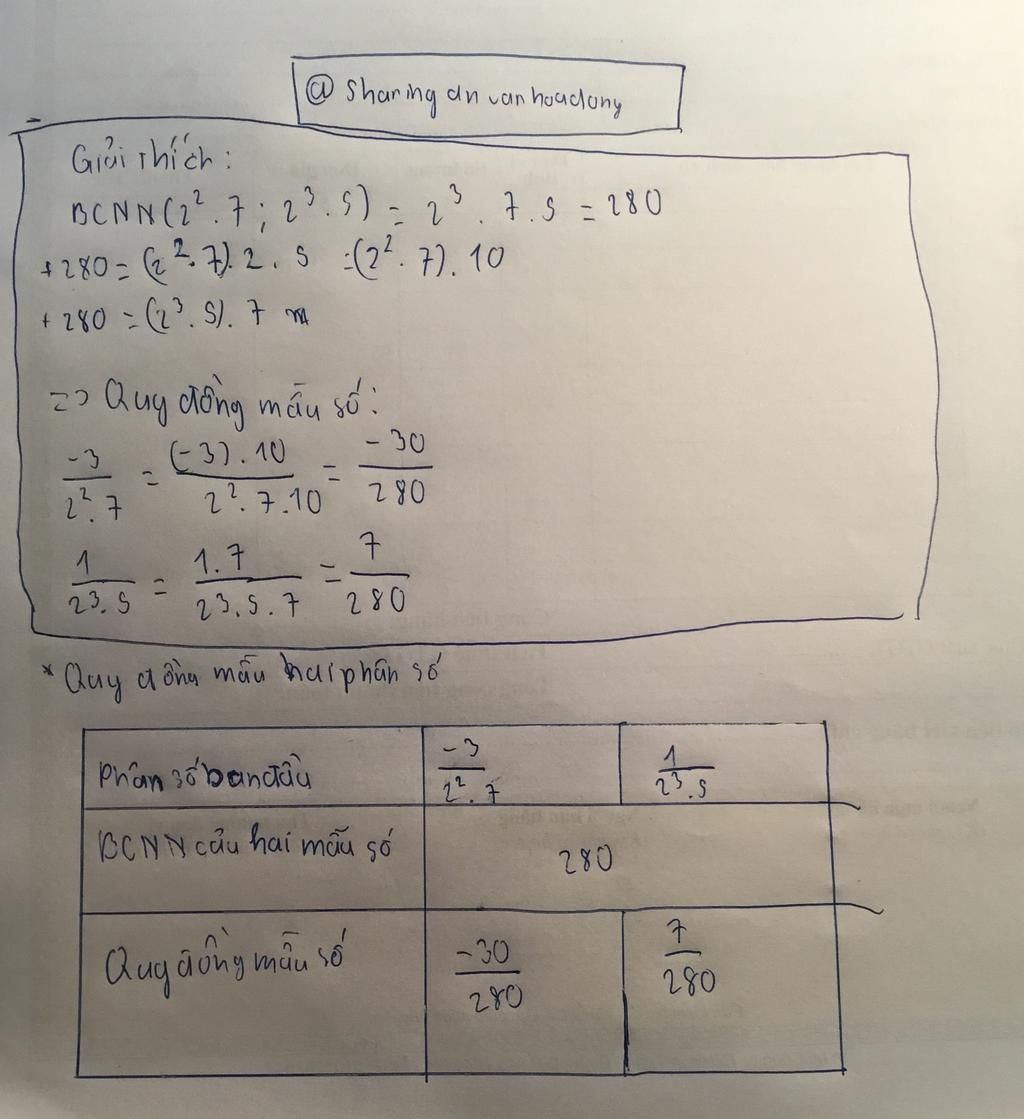 @ Sharing an van hoadong
Giải thích:
BCNN(2². 7 ; 2³. 5) = 2³. 7. 5 = 280
+ 280 = (2². 7). 2. 5 = (2². 7). 10
+ 280 = (2³. 5). 7
=> Quy đồng mẫu số:
-3/2². 7 = (-3). 10/2². 7. 10 = -30/280
1/2³. 5 = 1. 7/2³. 5. 7 = 7/280
* Quy đồng mẫu hai phân số
Phân số ban đầu -3/2². 7 1/2³. 5
BCNN của hai mẫu số 280
Quy đồng mẫu số -30/280 7/280